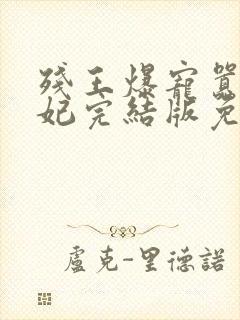 残王爆寵囂
妃完結版免
盧克-里德諾